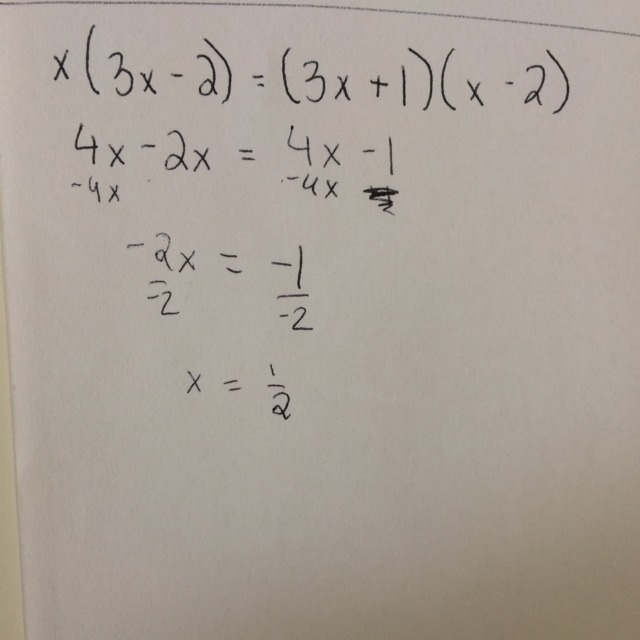 x(3x-2) = (3x+1)(x-2)
4x-2x = 4x-1
-4x -4x
-2x = -1
-2 -2
x = 1/2